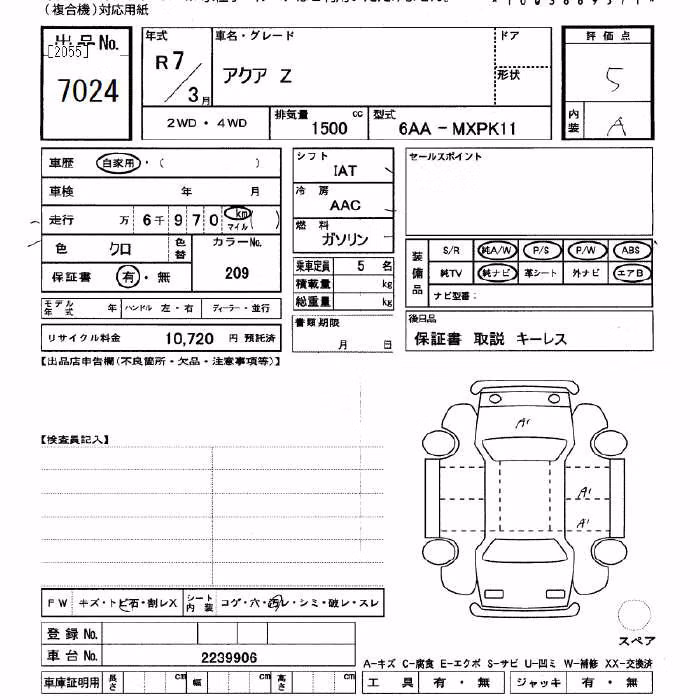 (複合機)対応用紙
出品No. 年式 車名・グレード ドア 評価点
[2055]
7024 R7/3月 アクア Z 形状 5
2WD・4WD 排気量 1500 cc 型式 6AA - MXPK11 内装 A
車歴 自家用・( ) シフト IAT セールスポイント
車検 年 月 冷房 AAC
走行 万 6千 9 7 0 km マイル ( ) 燃料 ガソリン
色 クロ 色替 カラーNo. 209 装備品 S/R 純A/W P/S P/W ABS
保証書 有・無 乗車定員 5 名 純TV 純ナビ 革シート 外ナビ エアB
積載量 kg ナビ型番:
モデル年式 年 ハンドル 左・右 ディーラー・並行 総重量 kg
リサイクル料金 10,720 円 預託済 書類期限 月 日 後日品 保証書 取説 キーレス
【出品店申告欄(不良箇所・欠品・注意事項等)】
A1
【検査員記入】
A1
A1
FW キズ・トビ石・割レX シート内装 コゲ・穴・汚レ・シミ・破レ・スレ
登録No.
スペア
車台No. 2239906
A-キズ C-腐食 E-エクボ S-サビ U-凹ミ W-補修 XX-交換済
車庫証明用 長さ cm 幅 cm 高さ cm 工具 有・無 ジャッキ 有・無